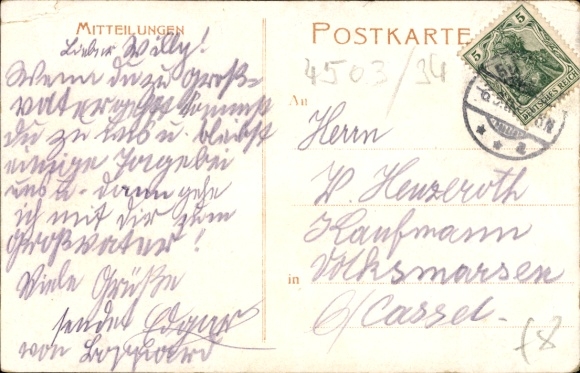 MITTEILUNGEN
Lieber Willy!
Wenn du zu Groß-
vater gehst kommst
du zu uns u. bleibst
einige Tage bei
uns u. dann gehe
ich mit dir zum
Großvater!
Viele Grüße
sendet Edgar
von Boppard
POSTKARTE
4503/34
5
5
DEUTSCHES REICH
An
Herrn
W. Henzeroth
Kaufmann
in Volksmarsen
b/Cassel.